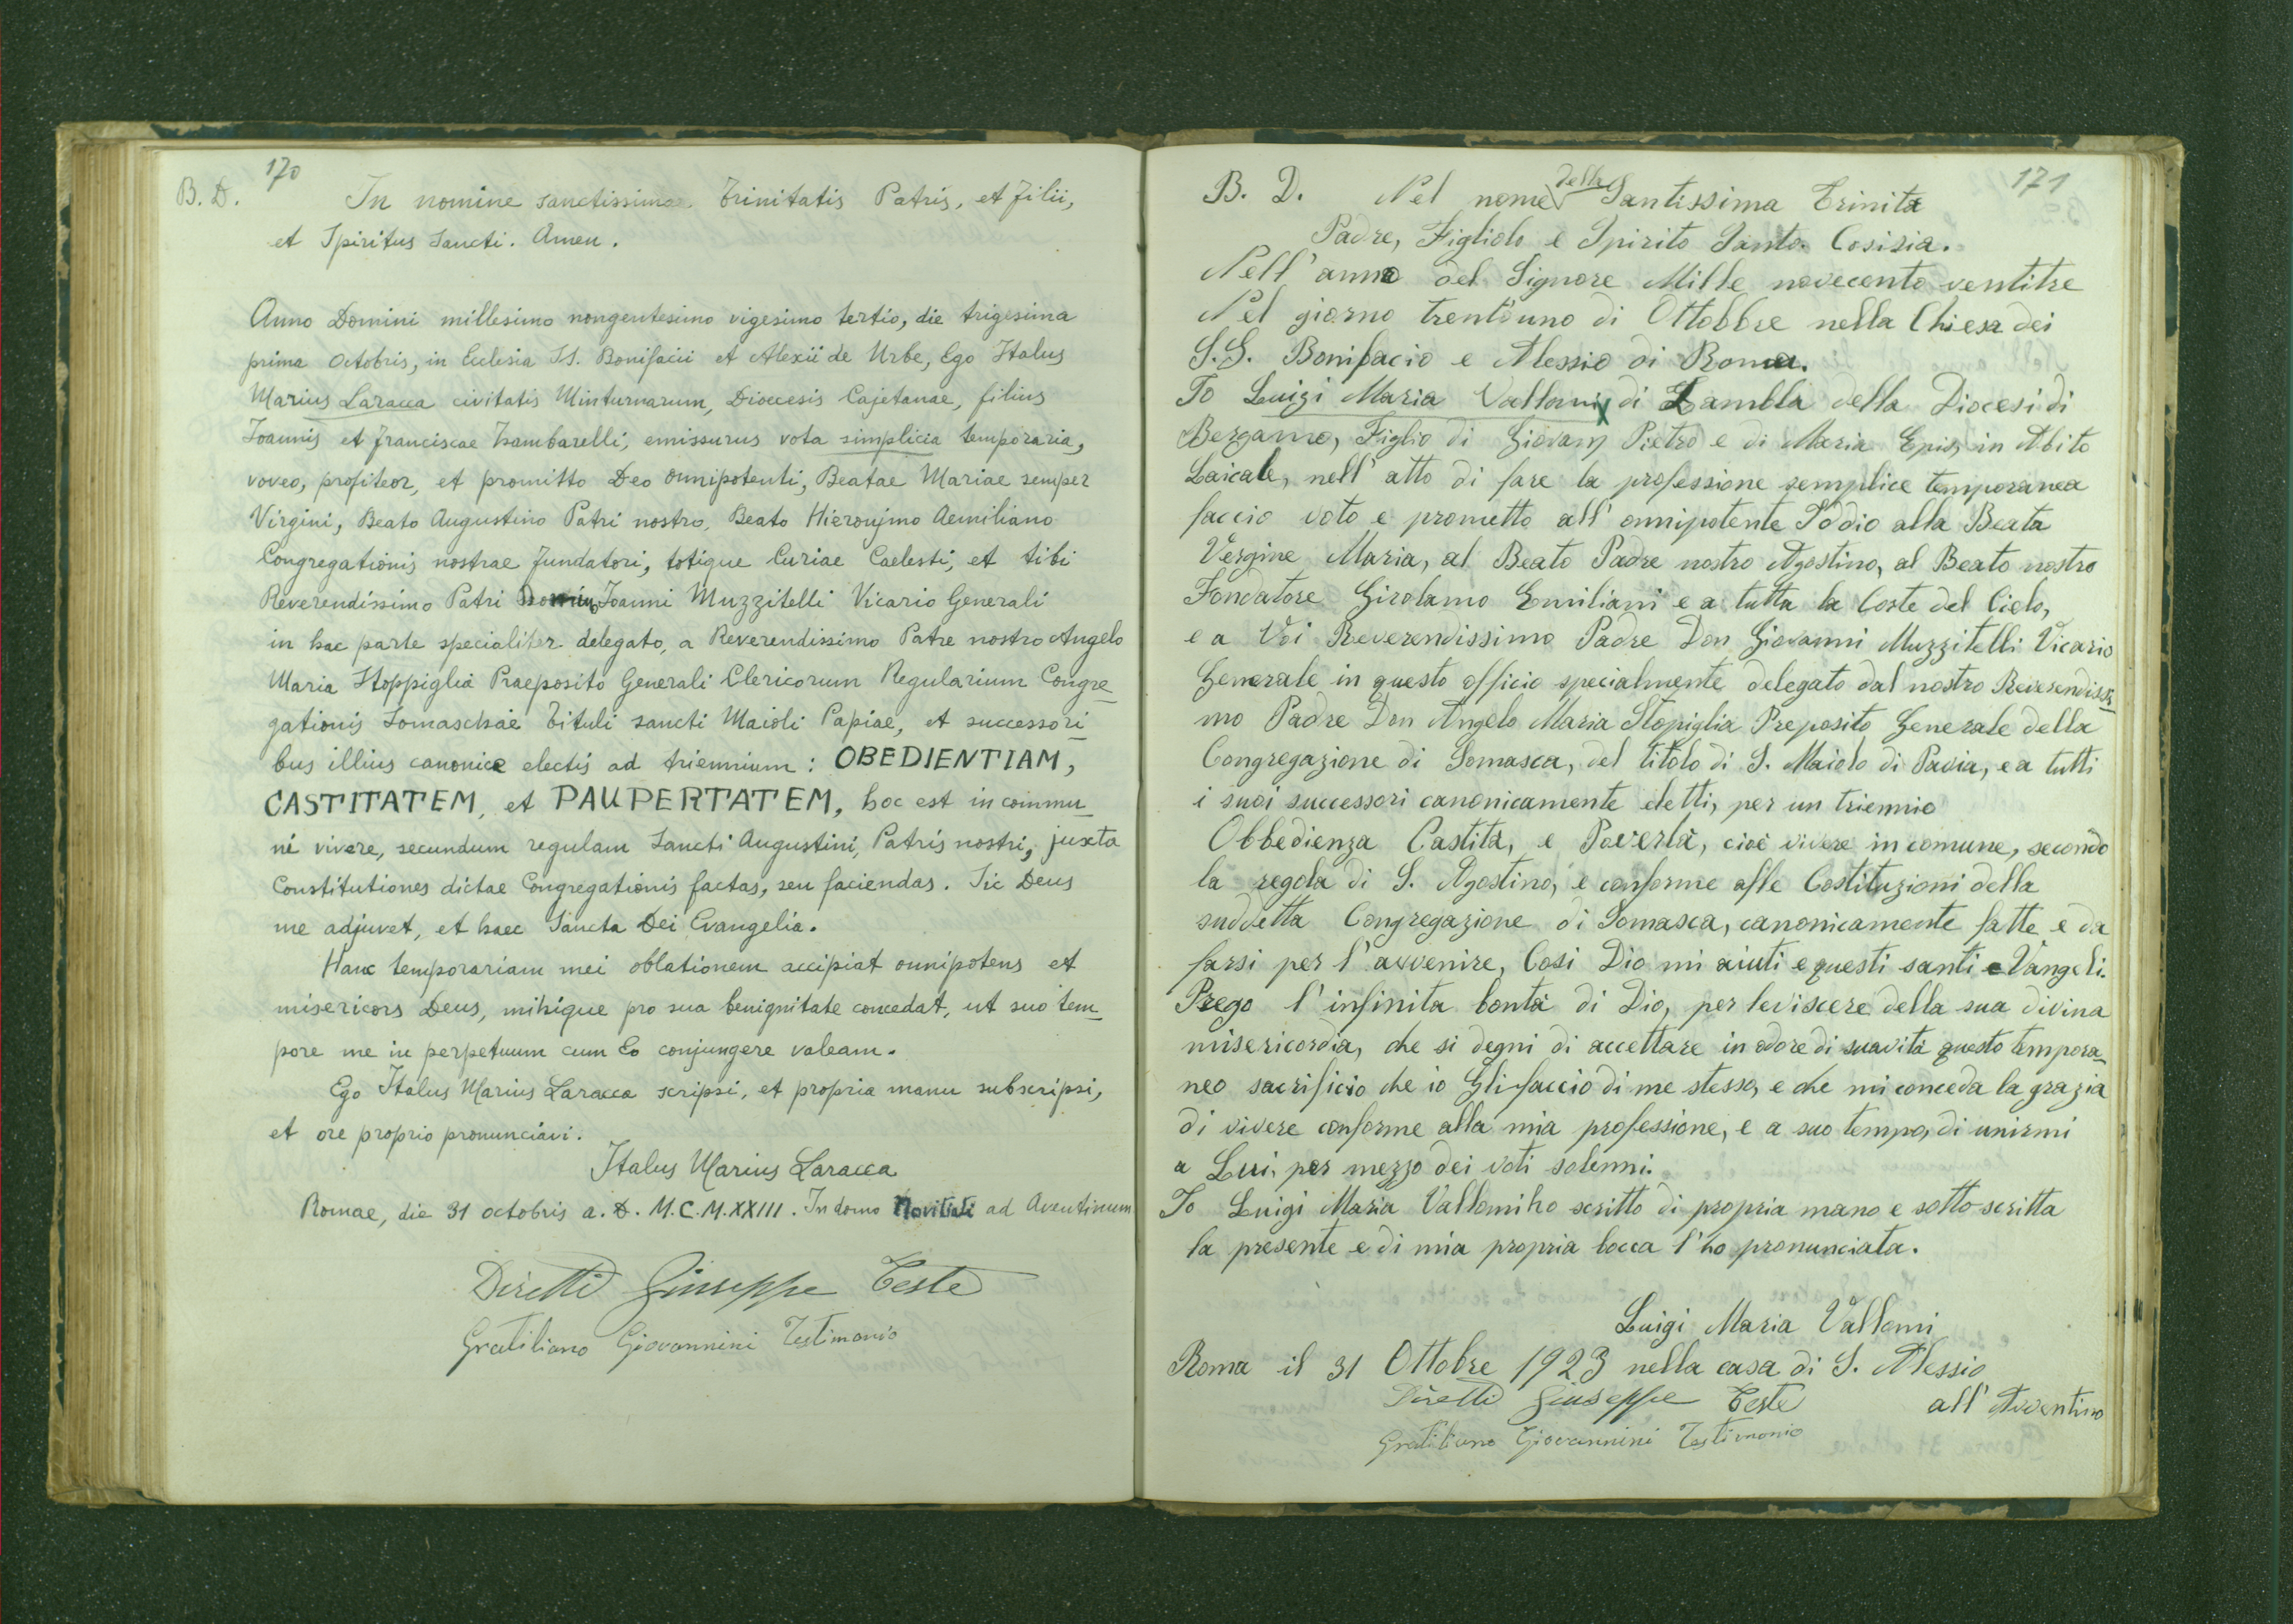 170
B. D.
In nomine sanctissimae Trinitatis Patris, et Filii,
et Spiritus Sancti. Amen.
Anno Domini millesimo nongentesimo vigesimo tertio, die trigesima
prima Octobris, in Ecclesia SS. Bonifacii et Alexii de Urbe, Ego Italus
Marius Laracca civitatis Minturnarum, Dioecesis Cajetanae, filius
Joannis et Franciscae Zambarelli, emissurus vota simplicia temporaria,
voveo, profiteor, et promitto Deo Omnipotenti, Beatae Mariae semper
Virgini, Beato Augustino Patri nostro, Beato Hieronymo Aemiliano
Congregationis nostrae Fundatori, totique Curiae Caelesti, et tibi
Reverendissimo Patri Joanni Muzzitelli Vicario Generali
in hac parte specialiter delegato, a Reverendissimo Patre nostro Angelo
Maria Stoppiglia Praeposito Generali Clericorum Regularium Congre_
gationis Somaschae Tituli sancti Maioli Papiae, et successori_
bus illius canonice electis ad triennium: OBEDIENTIAM,
CASTITATEM, et PAUPERTATEM, hoc est in commu_
ni vivere, secundum regulam Sancti Augustini, Patris nostri, juxta
Constitutiones dictae Congregationis factas, seu faciendas. Sic Deus
me adjuvet, et haec Sancta Dei Evangelia.
Hanc temporariam mei oblationem accipiat omnipotens et
misericors Deus, mihique pro sua benignitate concedat, ut suo tem_
pore me in perpetuum cum Eo conjungere valeam.
Ego Italus Marius Laracca scripsi, et propria manu subscripsi,
et ore proprio pronunciavi.
Italus Marius Laracca
Romae, die 31 octobris a. D. M.C.M.XXIII. In domo Novitiati ad Aventinum
Giuseppe Teste
Gratiliano Giovannini Testimonio
171
B. D. Nel nome della Santissima Trinita
Padre, Figliolo e Spirito Santo. Cosisia.
Nell'anno del Signore Mille novecento ventitre
Nel giorno trent'uno di Ottobbre nella Chiesa dei
S.S. Bonifacio e Alessio di Roma.
Io Luigi Maria Vallomi, di Zambla della Diocesi di
Bergamo, Figlio di Giovan Pietro e di Maria Epis, in Abito
Laicale, nell'atto di fare la professione semplice temporanea
faccio voto e prometto all'onnipotente Iddio alla Beata
Vergine Maria, al Beato Padre nostro Agostino, al Beato nostro
Fondatore Girolamo Emiliani e a tutta la Corte del Cielo,
e a Voi Reverendissimo Padre Don Giovanni Muzzitelli Vicario
Generale in questo officio specialmente delegato dal nostro Reverendissi_
mo Padre Don Angelo Maria Stopiglia Preposito Generale della
Congregazione di Somasca, del titolo di S. Maiolo di Pavia, e a tutti
i suoi successori canonicamente eletti, per un triennio
Obbedienza Castità, e Poverlà, cioè vivere in comune, secondo
la regola di S. Agostino, e conforme alle Costituzioni della
suddetta Congregazione di Somasca, canonicamente fatte e da
farsi per l'avvenire, Cosi Dio mi aiuti e questi santi e Vangeli.
Prego l'infinita bontà di Dio, per leviscere della sua divina
misericordia, che si degni di accettare in odore di suavità questo tempora_
neo sacrificio che io Gli faccio di me stesso, e che mi conceda la grazia
di vivere conforme alla mia professione, e a suo tempo, di unirmi
a Lui, per mezzo dei voti solenni.
Io Luigi Maria Vallomi ho scritto di propria mano e sotto scritta
la presente e di mia propria bocca l'ho pronunciata.
Luigi Maria Vallomi
Roma il 31 Ottobre 1923 nella casa di S. Alessio
all'Aventino
Giuseppe Teste
Gratiliano Giovannini Testimonio